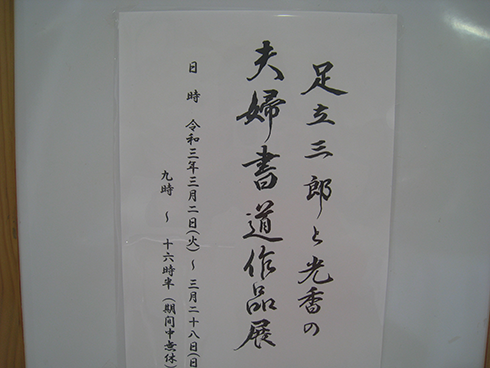 足立三郎と光香の
夫婦書道作品展
日時 令和三年三月二日(火)～三月二十八日(日
九時～十六時半(期間中無休)